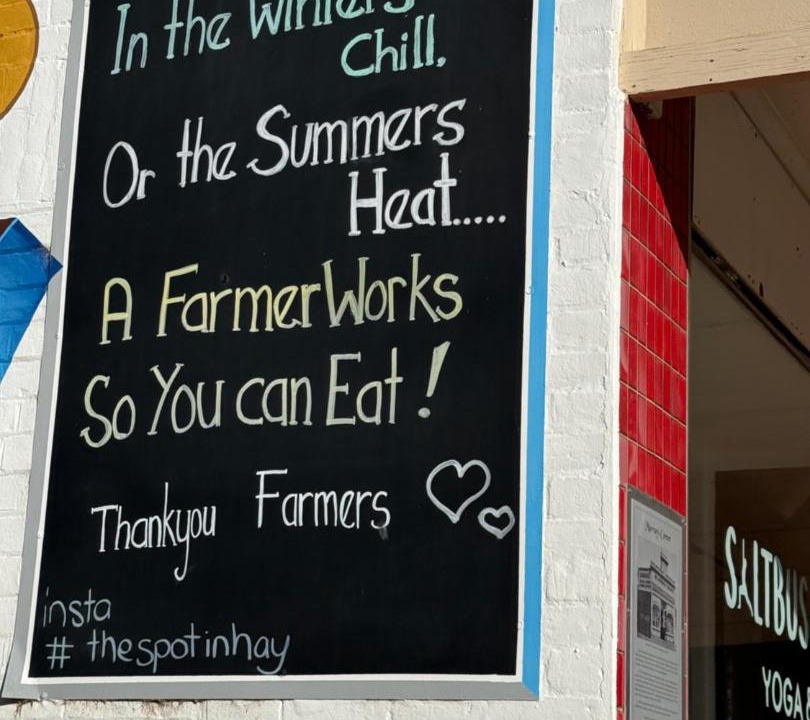 In the Winters
Chill.
Or the Summers
Heat.....
A Farmer Works
So You can Eat!
Thankyou Farmers
insta
# thespotinhay
SALTBUS
YOGA